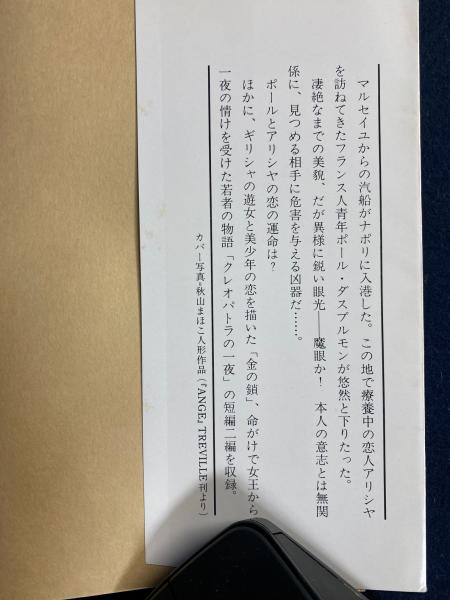 マルセイユからの汽船がナポリに入港した。この地で療養中の恋人アリシヤ
を訪ねてきたフランス人青年ポール・ダスプルモンが悠然と下りたった。
凄絶なまでの美貌、だが異様に鋭い眼光──魔眼か！　本人の意志とは無関
係に、見つめる相手に危害を与える凶器だ……。
ポールとアリシヤの恋の運命は？
ほかに、ギリシャの遊女と美少年の恋を描いた「金の鎖」、命がけで女王から
一夜の情けを受けた若者の物語「クレオパトラの一夜」の短編二編を収録。
カバー写真＝秋山まほこ人形作品（『ANGE』TREVILLE刊より）